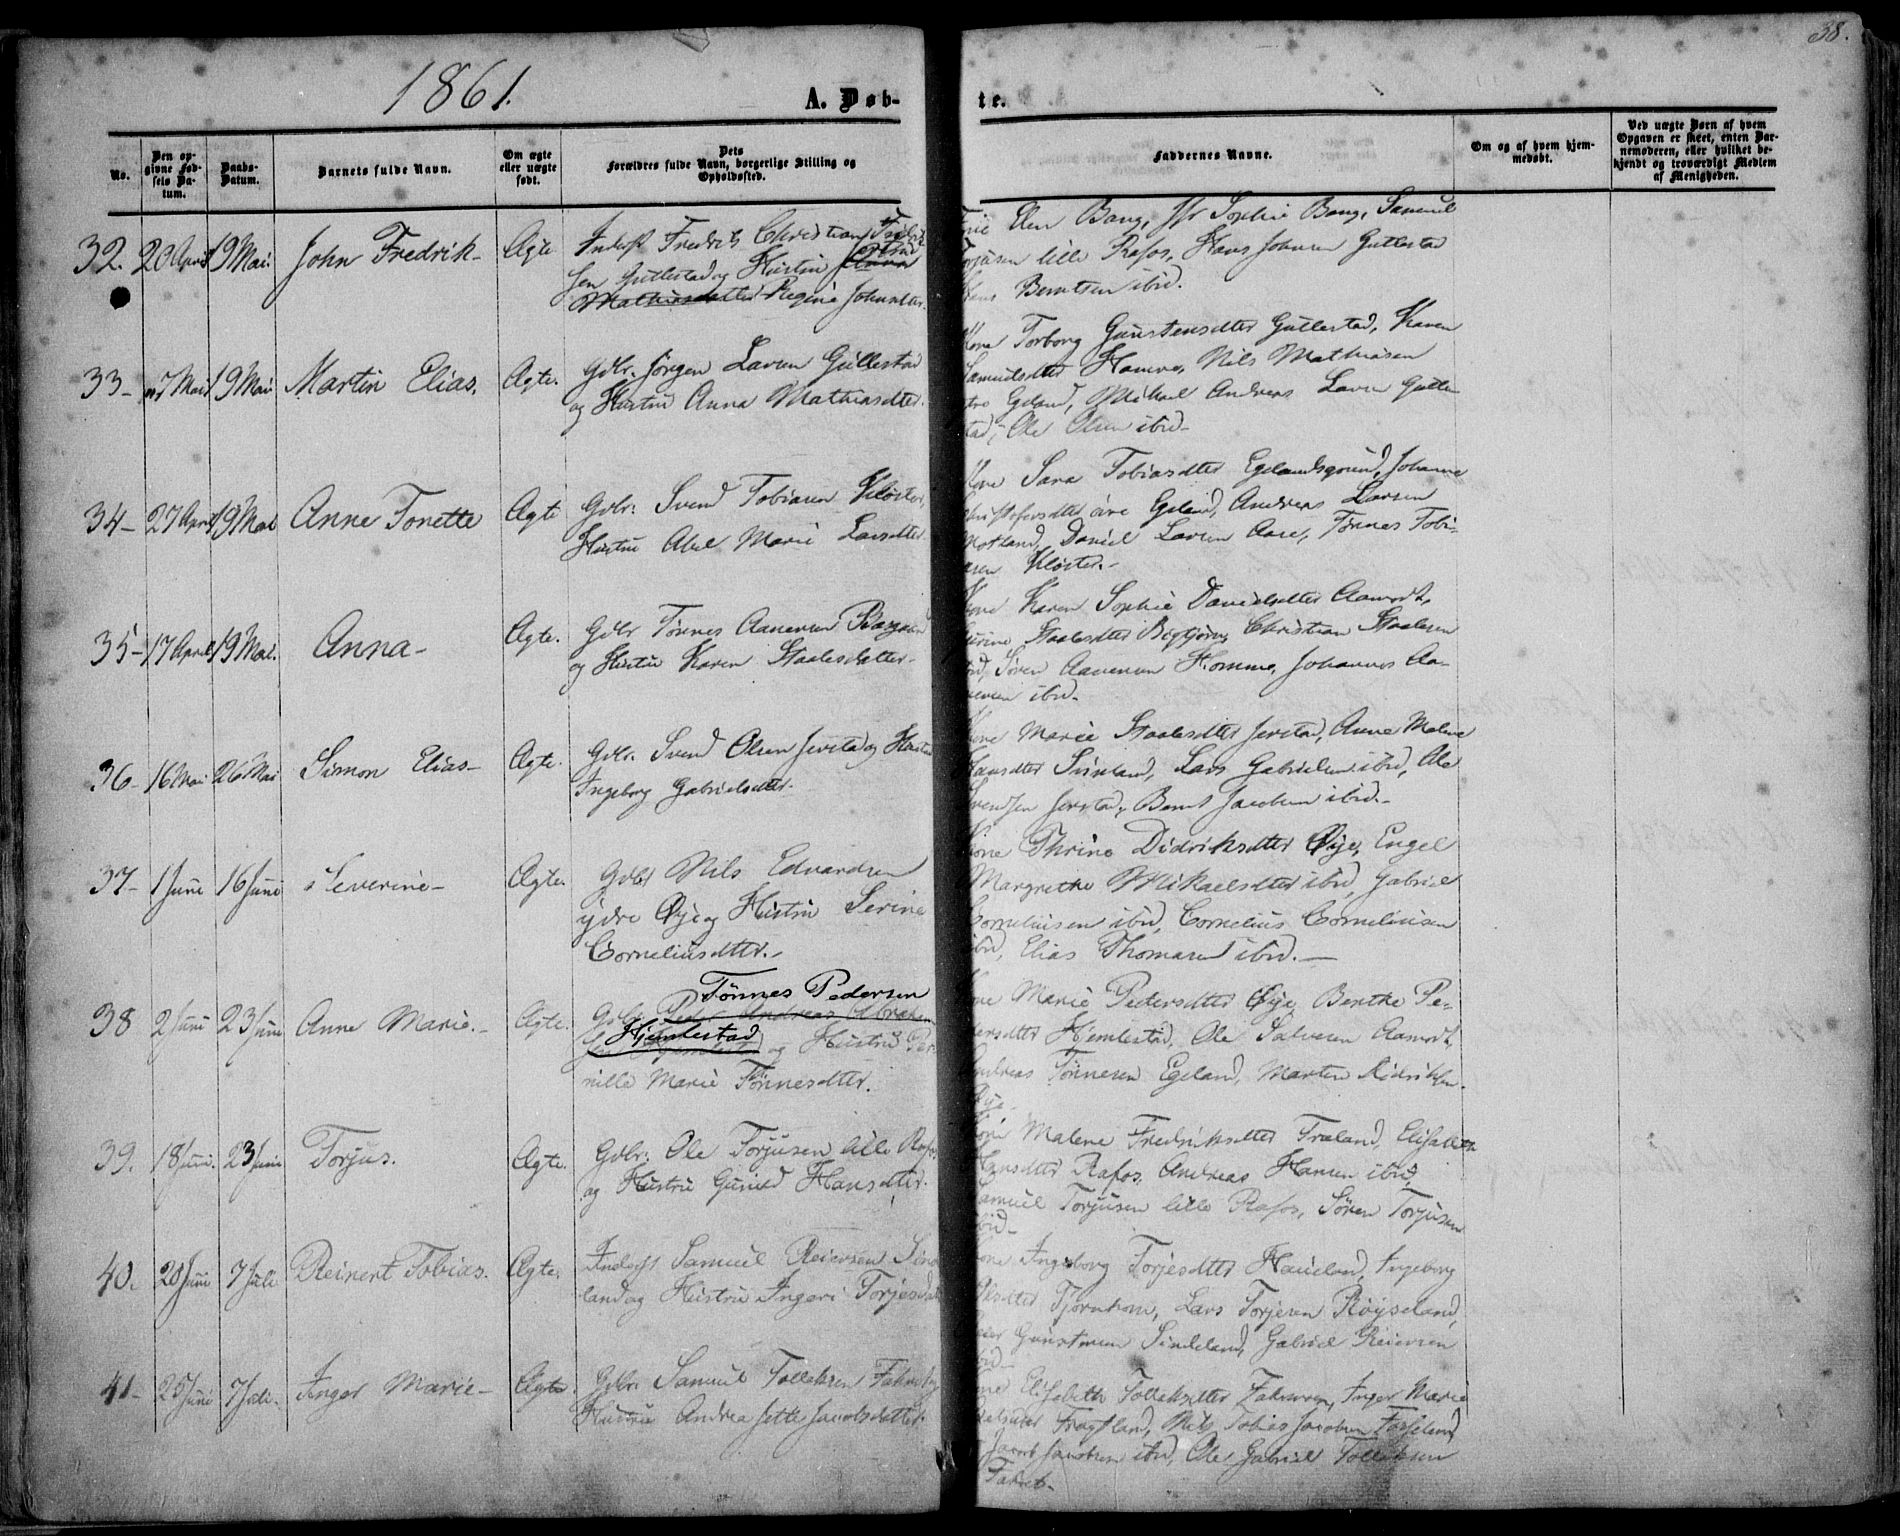 38.
1861.
A. Døb-
te.
No.
Den op-
givne Fød-
sels Da-
tum.
Daabs-
Datum.
Barnets fulde Navn.
Om ægte
eller uægte
født.
Dets
Forældres fulde Navn, borgerlige Stilling og
Opholdssted.
Faddernes Navne.
Om og af hvem hjem-
medøbt.
Ved uægte Børn af hvem
Opgaven er skeet, enten Bar-
nemoderen, eller hvilket be-
kjendt og troværdigt Medlem
af Menigheden.
32. 20 April 19 Mai. John Fredrik- Ægte
Inderst Fredrik Christian
sen Gullestad og Hustru
Mathiasdatter Regine Johnsdtr.
Elen Bang, Sophie Bang, Samuel
Torjusen lille Rafos, Hans Johnsen Gullestad
Berntsen ibid.
33- 7 Mai 19 Mai Martin Elias. Ægte.
Gdbr. Jørgen Larsen Gullestad
og Hustru Anna Mathiasdtter.
Kone Torborg Gunstensdtter Gullestad, Karen
Samuelsdtter Hamre, Nils Mathiasen
Egeland, Mikael Andreas Larsen Gulle-
stad, Ole Olsen ibid-
34- 27 April 19 Mai Anne Tonette Ægte
Gdbr. Svend Tobiasen Kloster,
Hustru Abel Marie Larsdtter.
Kone Sara Tobiasdtter Egelandsgrund, Johanne
Christofersdtter øvre Egeland, Andreas Larsen
Motland, Daniel Larsen Aase, Tønnes Tobi-
asen Kloster.-
35- 17 April 19 Mai. Anna- Ægte.
Gdbr Tønnes Aanensen
og Hustru Karen Staalesdatter-
Kone Karen Sophie Danielsdtter Aamodt,
Staalesdtter Christian Staalesen
ibid, Søren Aanensen Homme, Johannes Aa-
nensen ibid-
36- 16 Mai 26 Mai Simon Elias- Ægte.
Gdbr. Svend Olsen Jerstad og Hustru
Ingeborg Gabrielsdtter.
Kone Marie Staalesdtter Jerstad, Anne Malene
Hansdtter Sinland, Lars Gabrielsen ibid, Ole
Svendsen Jerstad, Bernt Jacobsen ibid.-
37- 1 Juni 16 Juni Severine- Ægte.
Gdbr Nils Edvardsen
ydre Øye og Hustru Serine
Corneliusdtter.-
Kone Thrine Didriksdtter Øye, Engel
Margrethe Mikaelsdtter ibid, Gabriel
Corneliusen ibid, Cornelius Corneliusen
ibid, Elias Thomasen ibid.-
38 2 Juni 23 Juni Anne Marie.- Ægte.
Tønnes Pedersen
Gdbr. Peder Andreas Abraham
Hjemlestad
og Hustru Per-
nille Marie Tønnesdtter.
Kone Marie Pedersdtter Øye, Berthe Pe-
dersdtter Hjemlestad, Ole Salvesen Aamodt,
Andreas Tønnesen Egeland, Marten Didriksen
Øye.
39. 18 Juni. 23 Juni Torjus. Ægte.
Gdbr. Ole Torjusen lille Rafos
og Hustru Gunild Hansdtter.
Kone Malene Fredriksdtter Træland, Elisabeth
Hansdtter Rafos, Andreas Hansen ibid,
Samuel Torjusen lille Rafos, Søren Torjusen
ibid-
40. 20 Juni 7 Juli Reinert Tobias. Ægte.
Inderst Samuel Reiersen Sinde
land og Hustru Ingeri Torjesdtr
Kone Ingeborg Torjesdtter Haueland, Ingeborg
Olsdtter Tjørnhom, Lars Torjesen Røyseland,
Reier Gunstensen Sindeland, Gabriel Reiersen
ibid-
41- 25 Juni 7 Juli. Inger Marie- Ægte.
Gdbr. Samuel Tolleksen
Hustru Andrea Jette Jacobsdatter.
Kone Elisabeth Tolleksdtter Inger Marie
Nils Tobias Jacobsen
Jacob Jacobsen ibid, Ole Gabriel Tolleksen